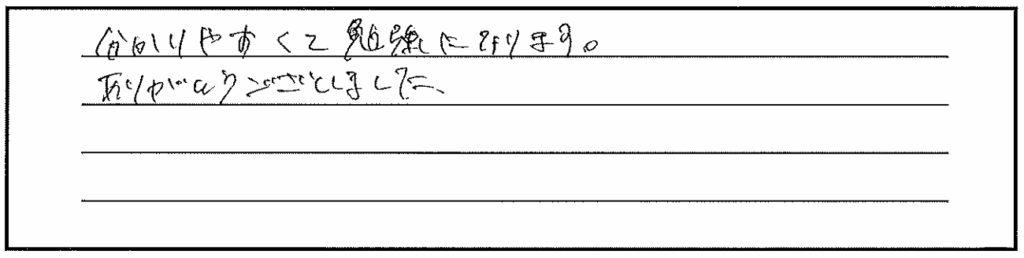 分かりやすくて勉強になります。
ありがとうございました